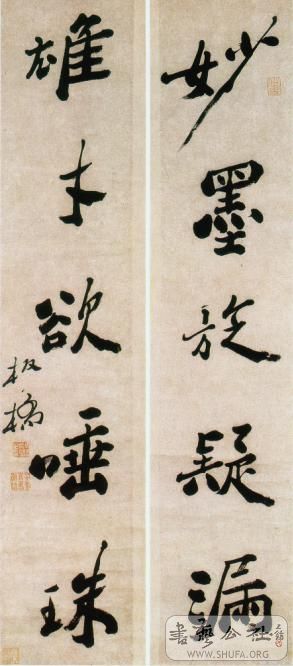 妙墨旋疑漏
雄才欲唾珠
板橋
書藝公社
WWW.SHUFA.ORG